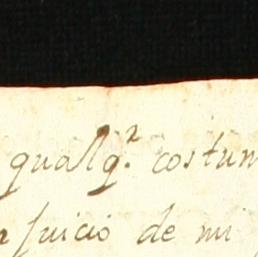 qualq.r costum
juicio de mi